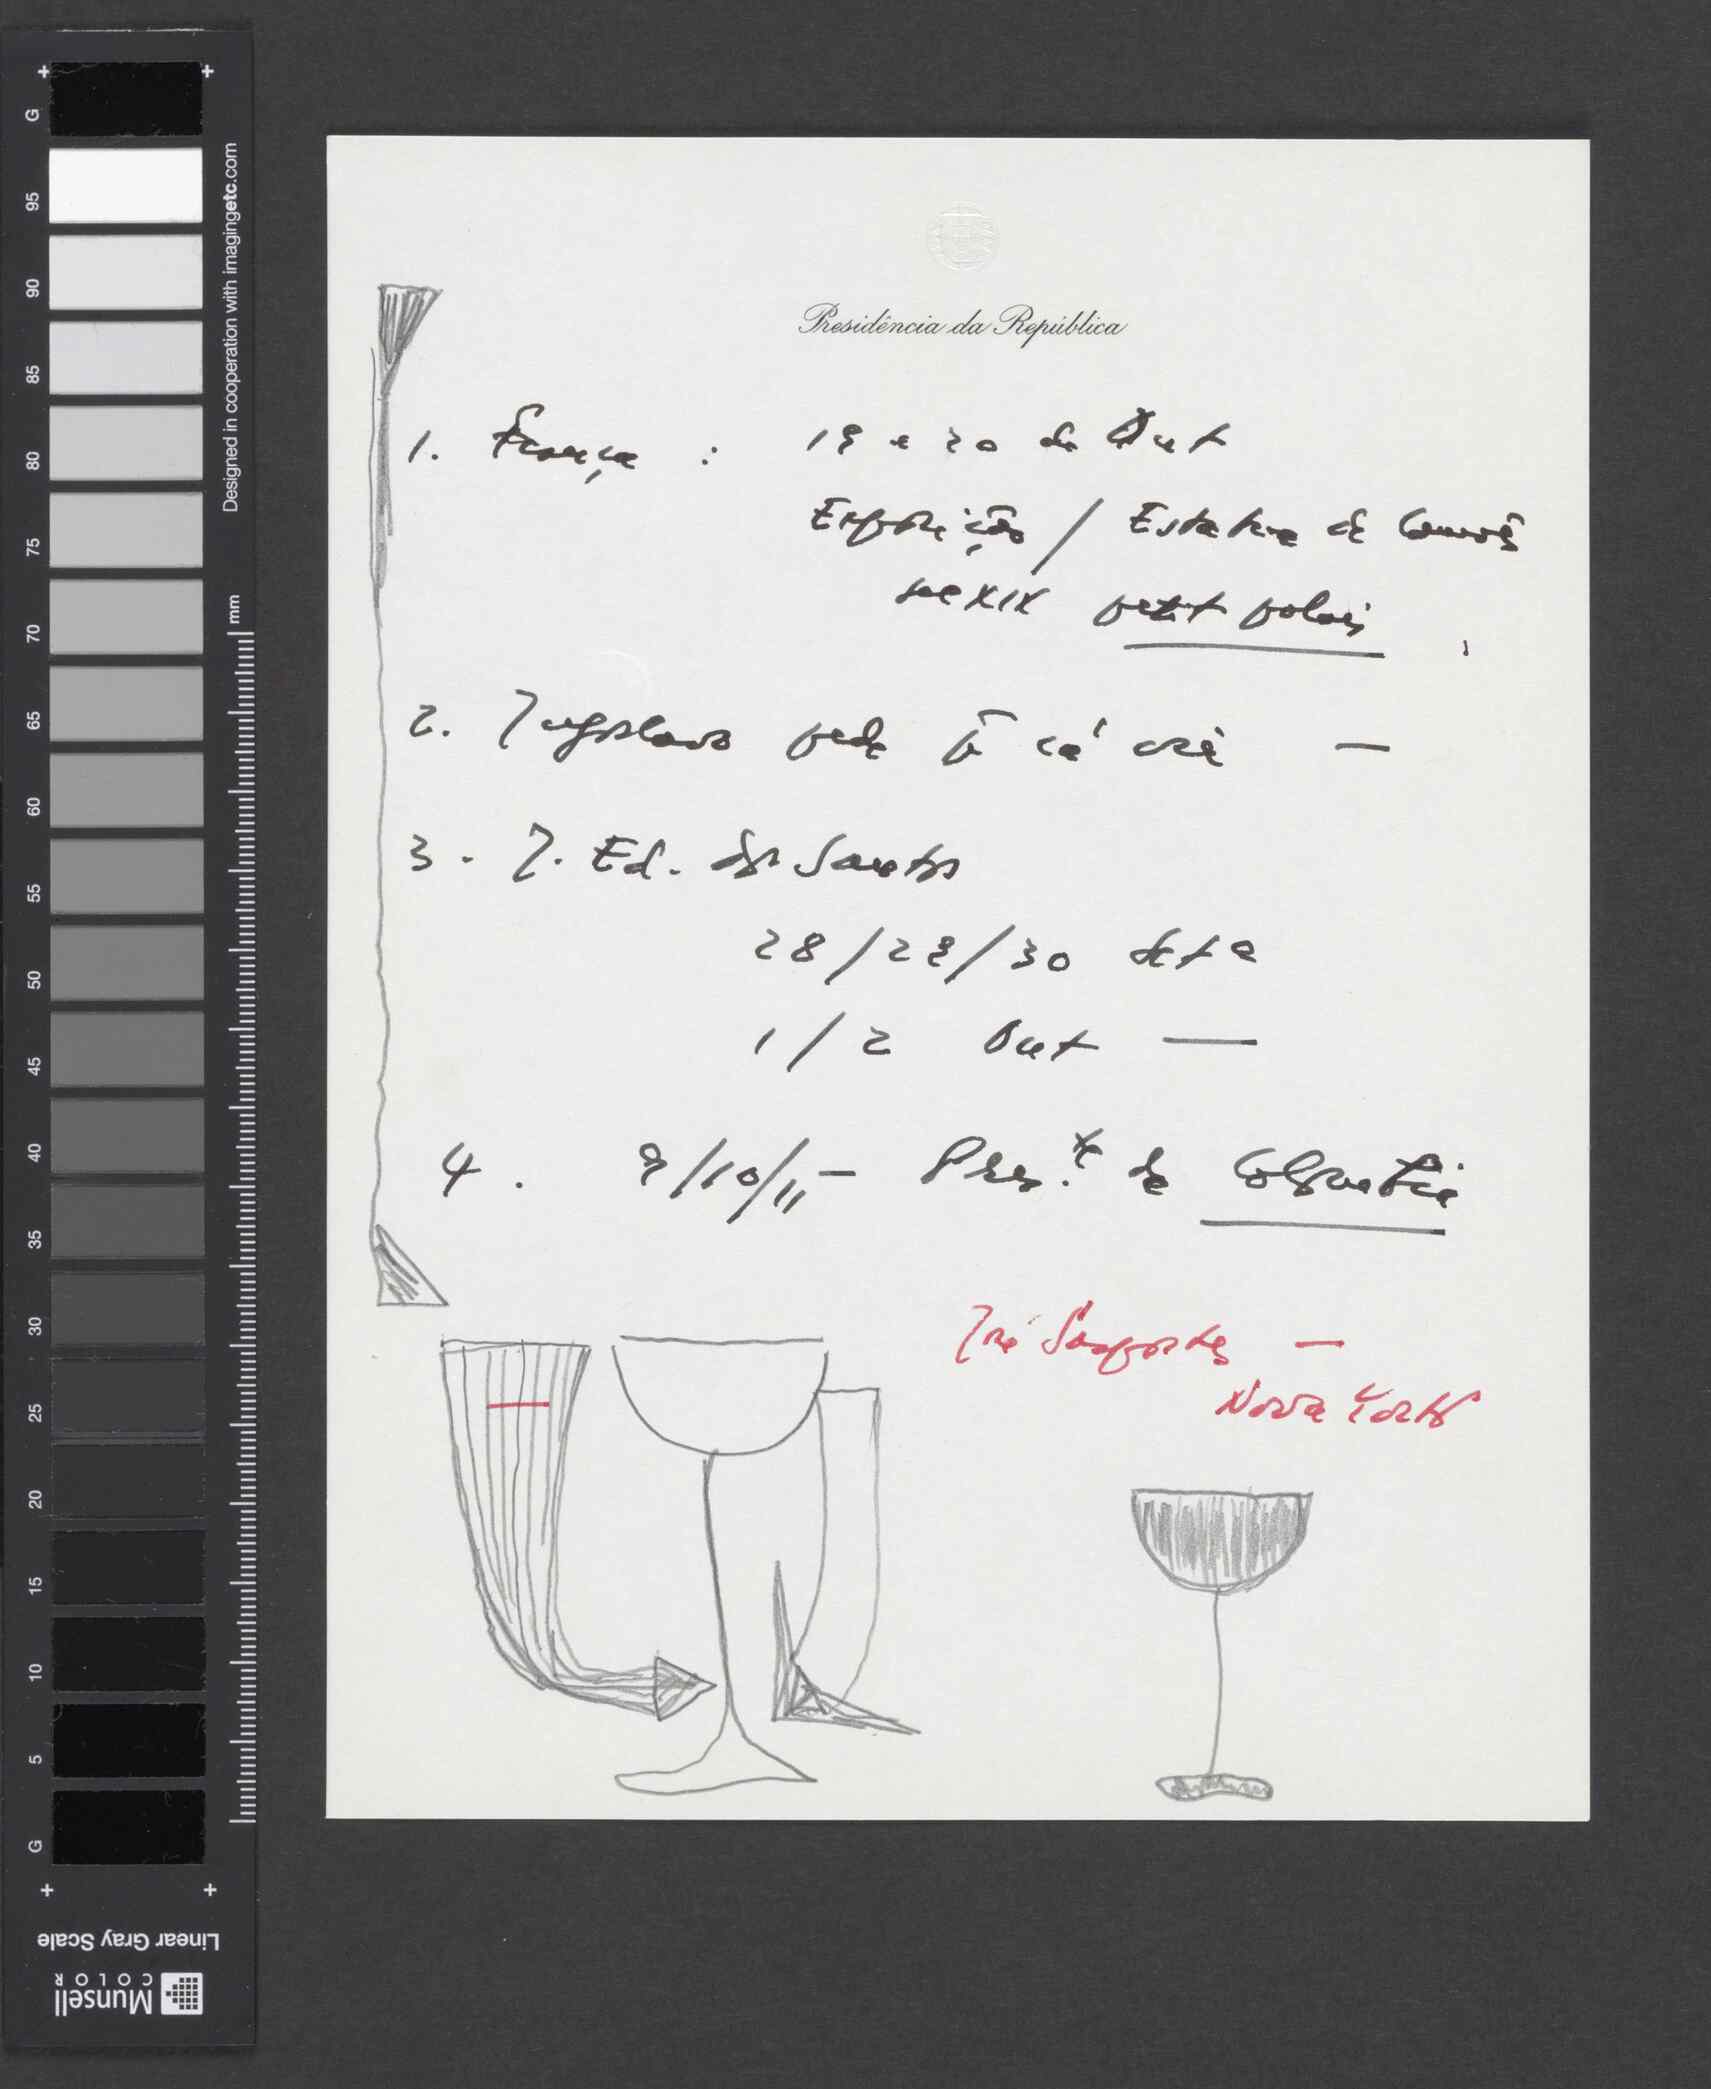 Presidência da República
1. França : 19 e 20 de Out
Exposição / Estatua de Camões
sec XIX petit palais
2. Jugoslavo pede p cá
3. J. Ed. dos Santos
28/29/30 Set e
1/2 Out —
4. 9/10/11 — Pres.te de Colombia
José Sasportes —
Nova York
G
95
90
85
80
75
70
65
60
55
50
45
40
35
30
25
20
15
10
5
G
Designed in cooperation with imagingetc.com
mm
Linear Gray Scale
Munsell
COLOR